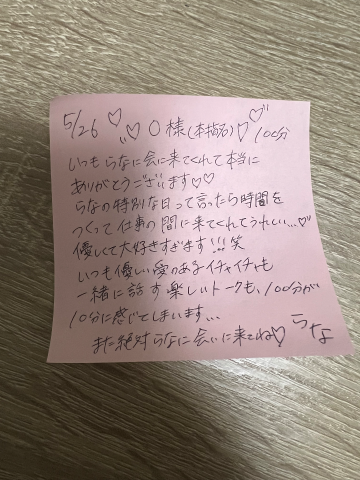 5/26 ♡ ♡♡ 〇様(本指名)♡ ♡♡ 100分
いつもらなに会に来てくれて本当に
ありがとうございます♡♡
らなの特別な日って言ったら時間を
つくって仕事の間に来てくれてうれしい...♡
優しくて大好きすぎます!!!笑
いつも優しい愛のあるイチャイチャも
一緒に話す楽しいトークも、100分が
10分に感じてしまいます...
また絶対らなに会いに来てね♡ らな